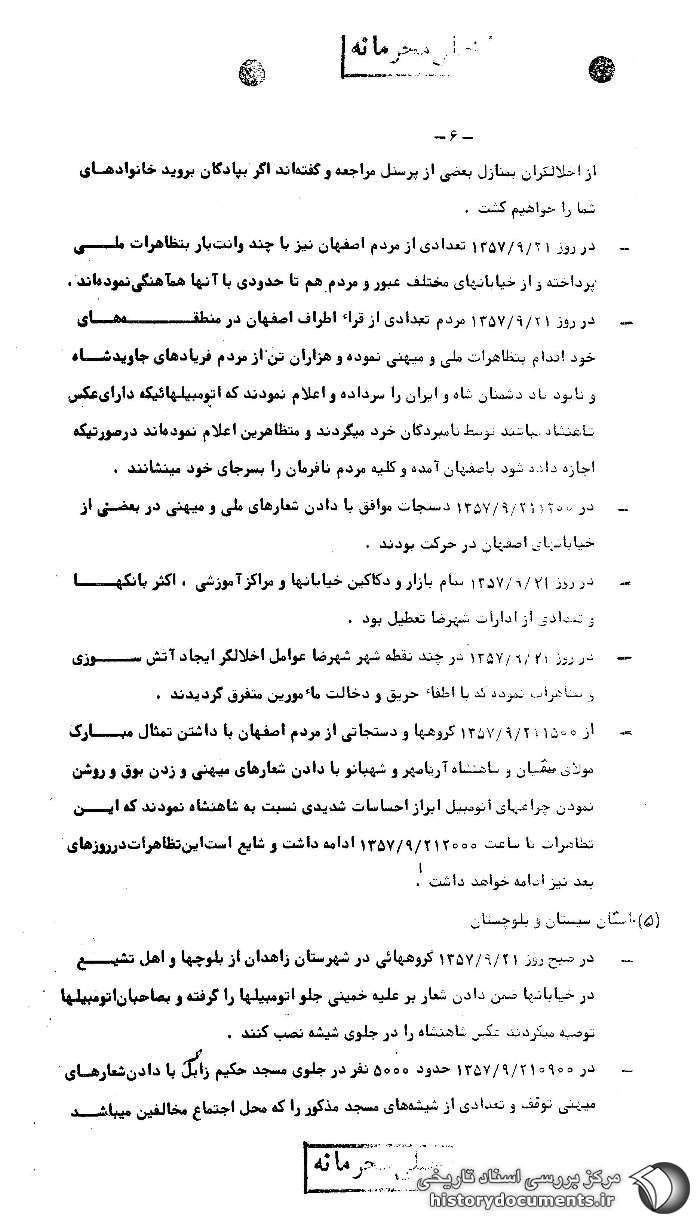 خیلی محرمانه
- ۶ -
از اخلالگران بمنازل بعضی از پرسنل مراجعه و گفته‌اند اگر بپادگان بروید خانوادهای
شما را خواهیم کشت .
- در روز ۱۳۵۷/۹/۲۱ تعدادی از مردم اصفهان نیز با چند وانت‌بار بتظاهرات ملی
پرداخته و از خیابانهای مختلف عبور و مردم هم تا حدودی با آنها همآهنگی‌نموده‌اند .
- در روز ۱۳۵۷/۹/۲۱ مردم تعدادی از قراء اطراف اصفهان در منطقه‌های
خود اقدام بتظاهرات ملی و میهنی نموده و هزاران تن از مردم فریادهای جاویدشاه
و نابود باد دشمنان شاه و ایران را سرداده و اعلام نمودند که اتومبیلهائیکه دارای‌عکس
شاهنشاه میباشد توسط نامبردگان خرد میگردند و متظاهرین اعلام نموده‌اند درصورتیکه
اجازه داده شود باصفهان آمده و کلیه مردم نافرمان را بسرجای خود مینشانند .
- در ۱۳۵۷/۹/۲۱۱۲۰۰ دستجات موافق با دادن شعارهای ملی و میهنی در بعضی از
خیابانهای اصفهان در حرکت بودند .
- در روز ۱۳۵۷/۹/۲۱ تمام بازار و دکاکین خیابانها و مراکز آموزشی ، اکثر بانکها
و تعدادی از ادارات شهرضا تعطیل بود .
- در روز ۱۳۵۷/۹/۲۱ در چند نقطه شهر شهرضا عوامل اخلالگر ایجاد آتش سوزی
و تظاهرات نموده که با اطفاء حریق و دخالت مأمورین متفرق گردیدند .
- از ۱۳۵۷/۹/۲۱۱۵۰۰ گروهها و دستجاتی از مردم اصفهان با داشتن تمثال مبارک
مولای متقیان و شاهنشاه آریامهر و شهبانو با دادن شعارهای میهنی و زدن بوق و روشن
نمودن چراغهای اتومبیل ابراز احساسات شدیدی نسبت به شاهنشاه نمودند که این
تظاهرات تا ساعت ۱۳۵۷/۹/۲۱۲۰۰۰ ادامه داشت و شایع است‌این‌تظاهرات‌درروزهای
بعد نیز ادامه خواهد داشت .
(۵) استان سیستان و بلوچستان
- در صبح روز ۱۳۵۷/۹/۲۱ گروههائی در شهرستان زاهدان از بلوچها و اهل تشیع
در خیابانها ضمن دادن شعار بر علیه خمینی جلو اتومبیلها را گرفته و بصاحبان‌اتومبیلها
توصیه میکردند عکس شاهنشاه را در جلوی شیشه نصب کنند .
- در ۱۳۵۷/۹/۲۱۰۹۰۰ حدود ۵۰۰۰ نفر در جلوی مسجد حکیم زابل با دادن‌شعارهای
میهنی توقف و تعدادی از شیشه‌های مسجد مذکور را که محل اجتماع مخالفین میباشد
خیلی محرمانه
مرکز بررسی اسناد تاریخی
historydocuments.ir